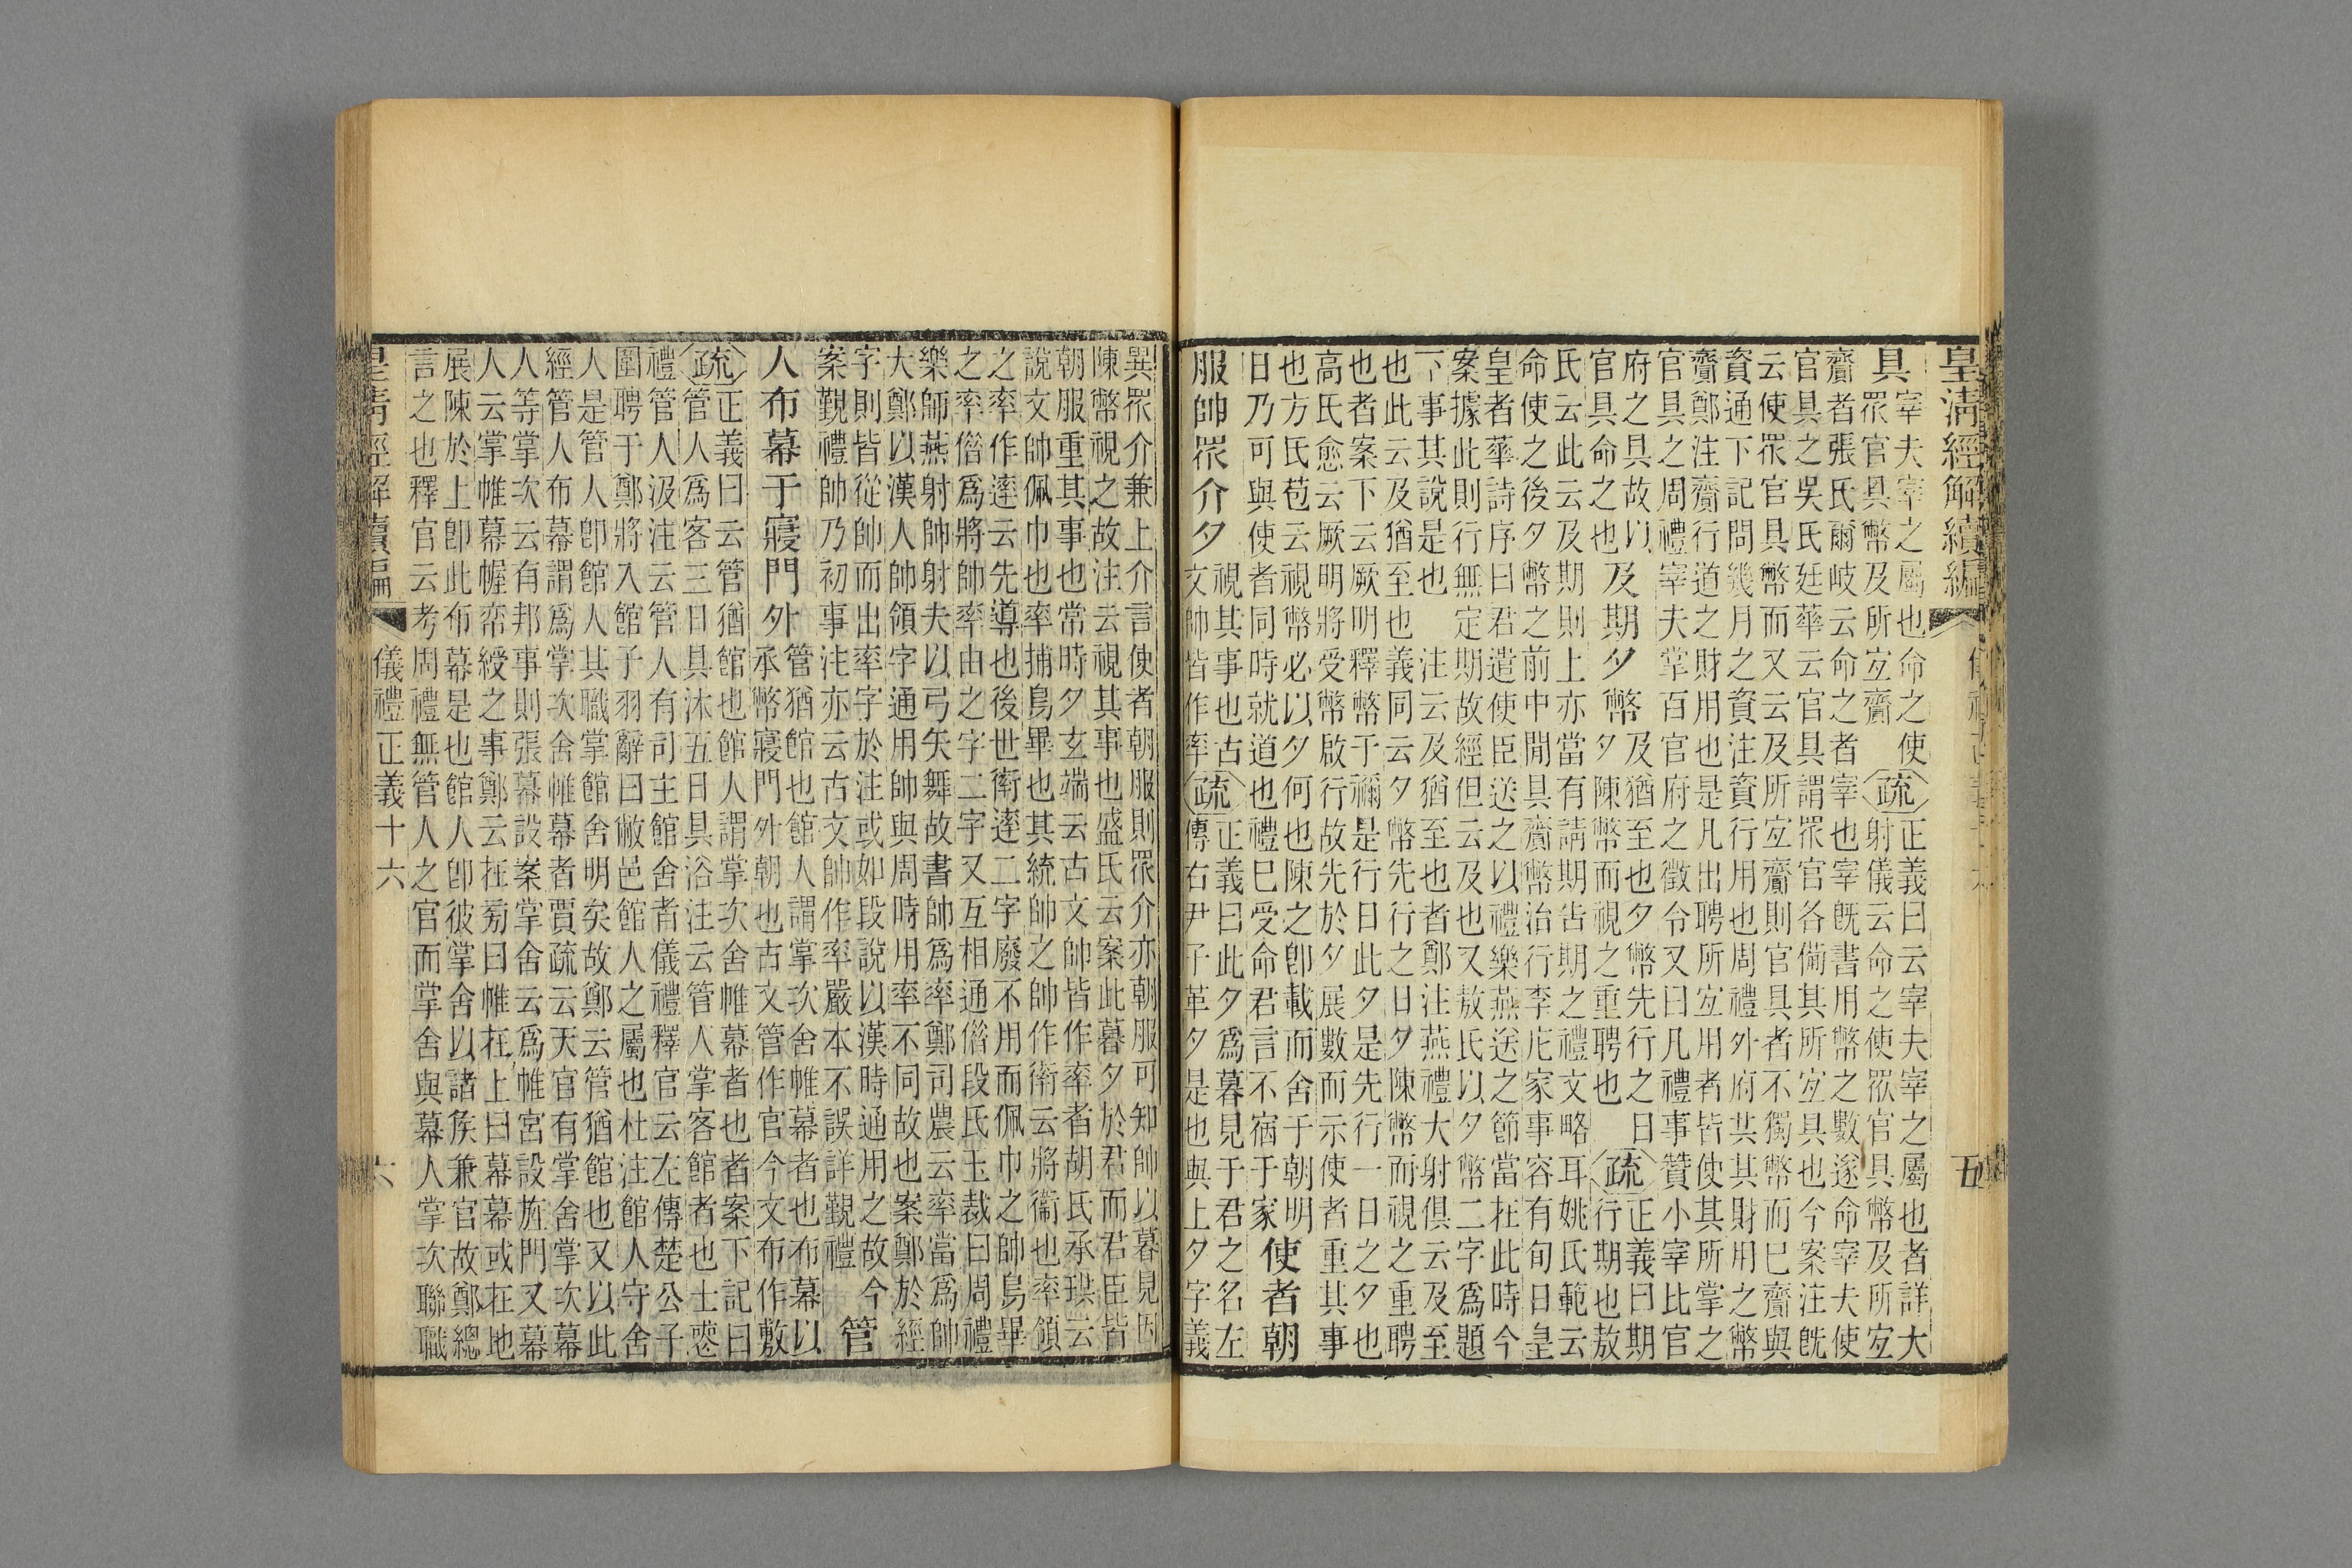 皇清經解續編
五
具
宰夫宰之屬也命之使
眾官具幣及所宐齎
疏
正義曰云宰夫宰之屬也者詳大
射儀云命之使眾官具幣及所宐
齎者張氏爾岐云命之者宰也宰旣書用幣之數遂命宰夫使
官具之吳氏廷華云官具謂眾官各備其所宐具也今案注旣
云使眾官具幣而又云及所宐齎則官具者不獨幣而巳齎與
資通下記問幾月之資注資行用也周禮外府共其財用之幣
齎鄭注齎行道之財用也是凡出聘所宐用者皆使其所掌之
官具之周禮宰夫掌百官府之徵令又曰凡禮事贊小宰比官
府之具故以
官具命之也
及期夕幣
及猶至也夕幣先行之日
夕陳幣而視之重聘也
疏
正義曰期
行期也敖
氏云此云及期則上亦當有請期告期之禮文略耳姚氏範云
命使之後夕幣之前中閒具齎幣治行李庀家事容有旬日皇
皇者華詩序曰君遣使臣送之以禮樂燕送之節當在此時今
案據此則行無定期故經但云及也又敖氏以夕幣二字爲題
下事其說是也　注云及猶至也者鄭注燕禮大射俱云及至
也此云及猶至也義同云夕幣先行之日夕陳幣而視之重聘
也者案下云厥明釋幣于禰是行日此夕是先行一日之夕也
高氏愈云厥明將受幣啟行故先於夕展數而示使者重其事
也方氏苞云視幣必以夕何也陳之卽載而舍于朝明
日乃可與使者同時就道也禮巳受命君言不宿于家
使者朝
服帥眾介夕
視其事也古
文帥皆作率
疏
正義曰此夕爲暮見于君之名左
傳右尹子革夕是也與上夕字義
異眾介兼上介言使者朝服則眾介亦朝服可知帥以暮見因
陳幣視之故注云視其事也盛氏云案此暮夕於君而君臣皆
朝服重其事也常時夕玄端云古文帥皆作率者胡氏承珙云
說文帥佩巾也率捕鳥畢也其統帥之帥作䘙云將䘙也率領
之率作逹云先導也後世䘙逹二字廢不用而佩巾之帥鳥畢
之率偺爲將帥率由之字二字又互相通偺段氏玉裁曰周禮
樂師燕射帥射夫以弓矢舞故書帥爲率鄭司農云率當爲帥
大鄭以漢人帥領字通用帥與周時用率不同故也案鄭於經
字則皆從帥而出率字於注或如段說以漢時通用之故　今
案覲禮帥乃初事注亦云古文帥作率嚴本不誤詳覲禮
管
人布幕于寢門外
管猶館也館人謂掌次舍帷幕者也布幕以
承幣寢門外朝也古文管作官今文布作敷
疏
正義曰云管猶館也館人謂掌次舍帷幕者也者案下記曰
管人爲客三日具沐五日具浴注云管人掌客館者也士喪
禮管人汲注云管人有司主館舍者儀禮釋官云左傳楚公子
圍聘于鄭將入館子羽辭曰敝邑館人之屬也杜注館人守舍
人是管人卽館人其職掌館舍明矣故鄭云管猶館也又以此
經管人布幕謂爲掌次舍帷幕者賈疏云天官有掌舍掌次幕
人等掌次云有邦事則張幕設案掌舍云爲帷宮設旌門又幕
人云掌帷幕幄帟綬之事鄭云在㫄曰帷在上曰幕幕或在地
展陳於上卽此布幕是也館人卽彼掌舍以諸矦兼官故鄭總
言之也釋官云考周禮無管人之官而掌舍與幕人掌次聯職
皇清經解續編
儀禮正義十六
六